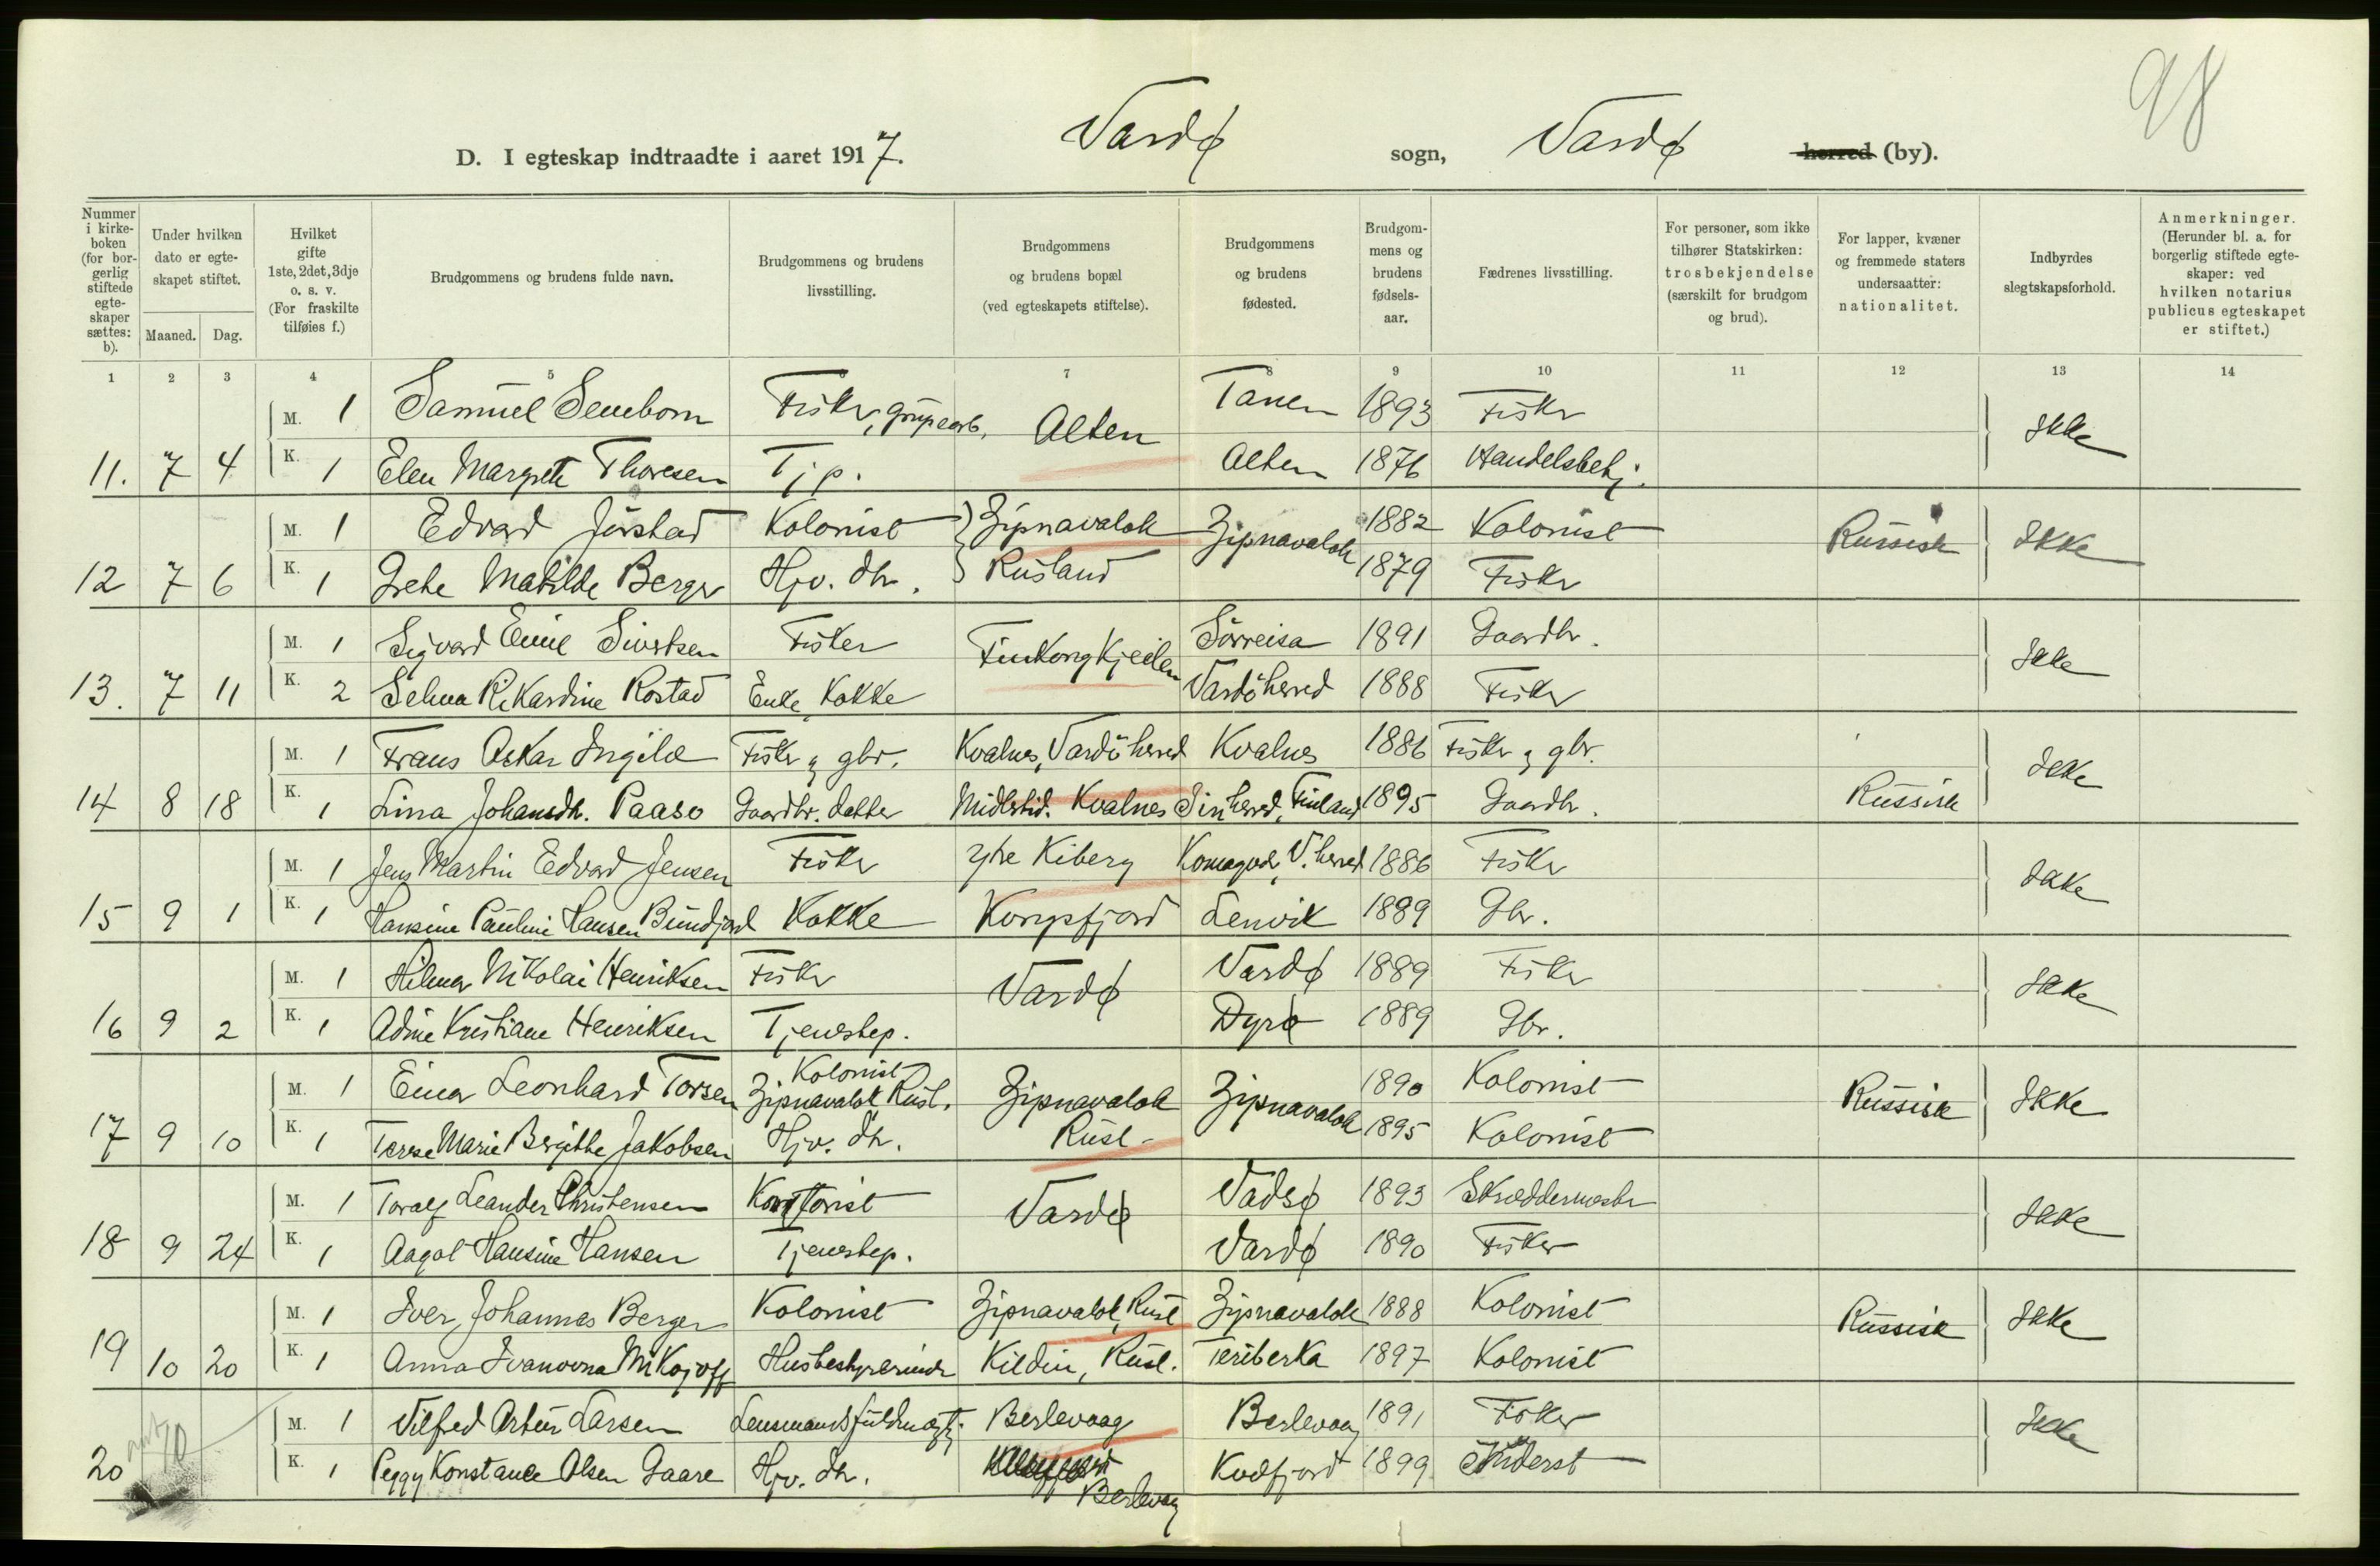 98
D. I egteskap indtraadte i aaret 1917. Vardø sogn, Vardø herred (by).
Nummer i kirkeboken (for borgerlig stiftede egteskaper sættes: b).
Under hvilken dato er egteskapet stiftet.
Maaned. Dag.
Hvilket gifte 1ste, 2det, 3dje o. s. v. (For fraskilte tilføies f.)
Brudgommens og brudens fulde navn.
Brudgommens og brudens livsstilling.
Brudgommens og brudens bopæl (ved egteskapets stiftelse).
Brudgommens og brudens fødested.
Brudgommens og brudens fødselsaar.
Fædrenes livsstilling.
For personer, som ikke tilhører Statskirken: trosbekjendelse (særskilt for brudgom og brud).
For lapper, kvæner og fremmede staters undersaatter: nationalitet.
Indbyrdes slegtskapsforhold.
Anmerkninger. (Herunder bl. a. for borgerlig stiftede egteskaper: ved hvilken notarius publicus egteskapet er stiftet.)
1 2 3 4 5 6 7 8 9 10 11 12 13 14
M. 1 Samuel Seneborn Fisker, grupearb. Alten Tanen 1893 Fisker Ikke
11. 7 4 K. 1 Elen Margrete Thoresen Tjp. Alten 1876 Handelsbetj.
M. 1 Edvard Jørstad Kolonist Zipnavalok Zipnavalok 1882 Kolonist Russisk Ikke
12 7 6 K. 1 Grete Matilde Berger Hjv. dtr. Rusland 1879 Fisker
M. 1 Sigvard Emil Sivertsen Fisker Finkongkjeilen Sörreisa 1891 Gaardbr. Ikke
13. 7 11 K. 2 Selma Rikardine Rostad Enke, Kokke Vardö herred 1888 Fisker
M. 1 Frans Oskar Ingilæ Fisker og gbr. Kvalnes, Vardö herred Kvalnes 1886 Fisker og gbr. Ikke
14 8 18 K. 1 Lina Johansdtr. Paaso Gaardbr. datter Midlertid. Kvalnes Sin herred, Finland 1895 Gaardbr. Russisk
M. 1 Jens Martin Edvard Jensen Fisker Ytre Kiberg Komagvær, V. herred 1886 Fisker Ikke
15 9 1 K. 1 Hansine Pauline Hansen Bundjord Kokke Kongsfjord Lenvik 1889 Gbr.
M. 1 Hilmar Nikolai Henriksen Fisker Vardø Vardø 1889 Fisker Ikke
16 9 2 K. 1 Adine Kristiane Henriksen Tjenestep. Dyrø 1889 Gbr.
M. 1 Einar Leonhard Torsen Kolonist Zipnavalok Rusl. Zipnavalok Zipnavalok 1890 Kolonist Russisk Ikke
17 9 10 K. 1 Terese Marie Bergitte Jakobsen Hjv. dtr. Rusl. 1895 Kolonist
M. 1 Toralf Leander Christensen Kontorist Vardø Vadsø 1893 Skræddermester Ikke
18 9 24 K. 1 Aagot Hansine Hansen Tjenestep. Vardø 1890 Fisker
M. 1 Iver Johannes Berger Kolonist Zipnavalok, Rusl Zipnavalok 1888 Kolonist Russisk Ikke
19 10 20 K. 1 Anna Ivanovna Nikojoff Husbestyrerinde Kildin, Rusl. Teriberka 1897 Kolonist
M. 1 Vilfred Artur Larsen Lensmandsfuldmægtig Berlevaag Berlevaag 1891 Fisker Ikke
20 10 K. 1 Peggy Konstance Olsen Gaare Hjv. dtr. Berlevaag Kvæfjord 1899 Inderst